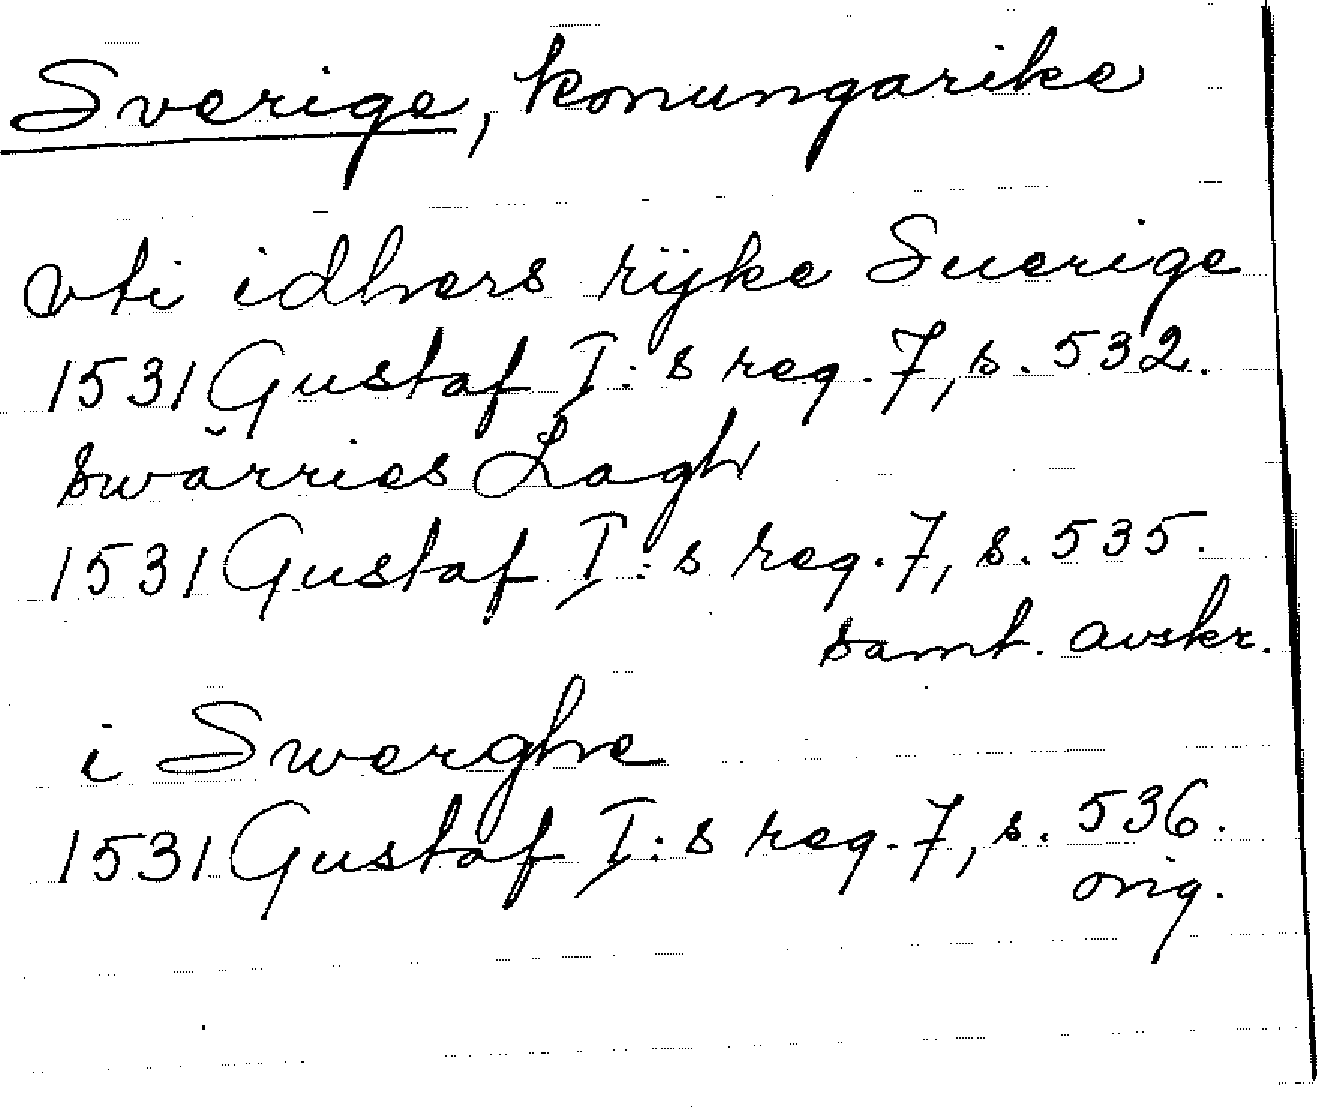 Sverige, konungarike
vti idhers rijke Suerige
1531 Gustaf I:s reg. 7, s. 532.
swärries Lagh
1531 Gustaf I:s reg. 7, s. 535.
samt. avskr.
i Swerghe
1531 Gustaf I:s reg. 7, s. 536.
orig.